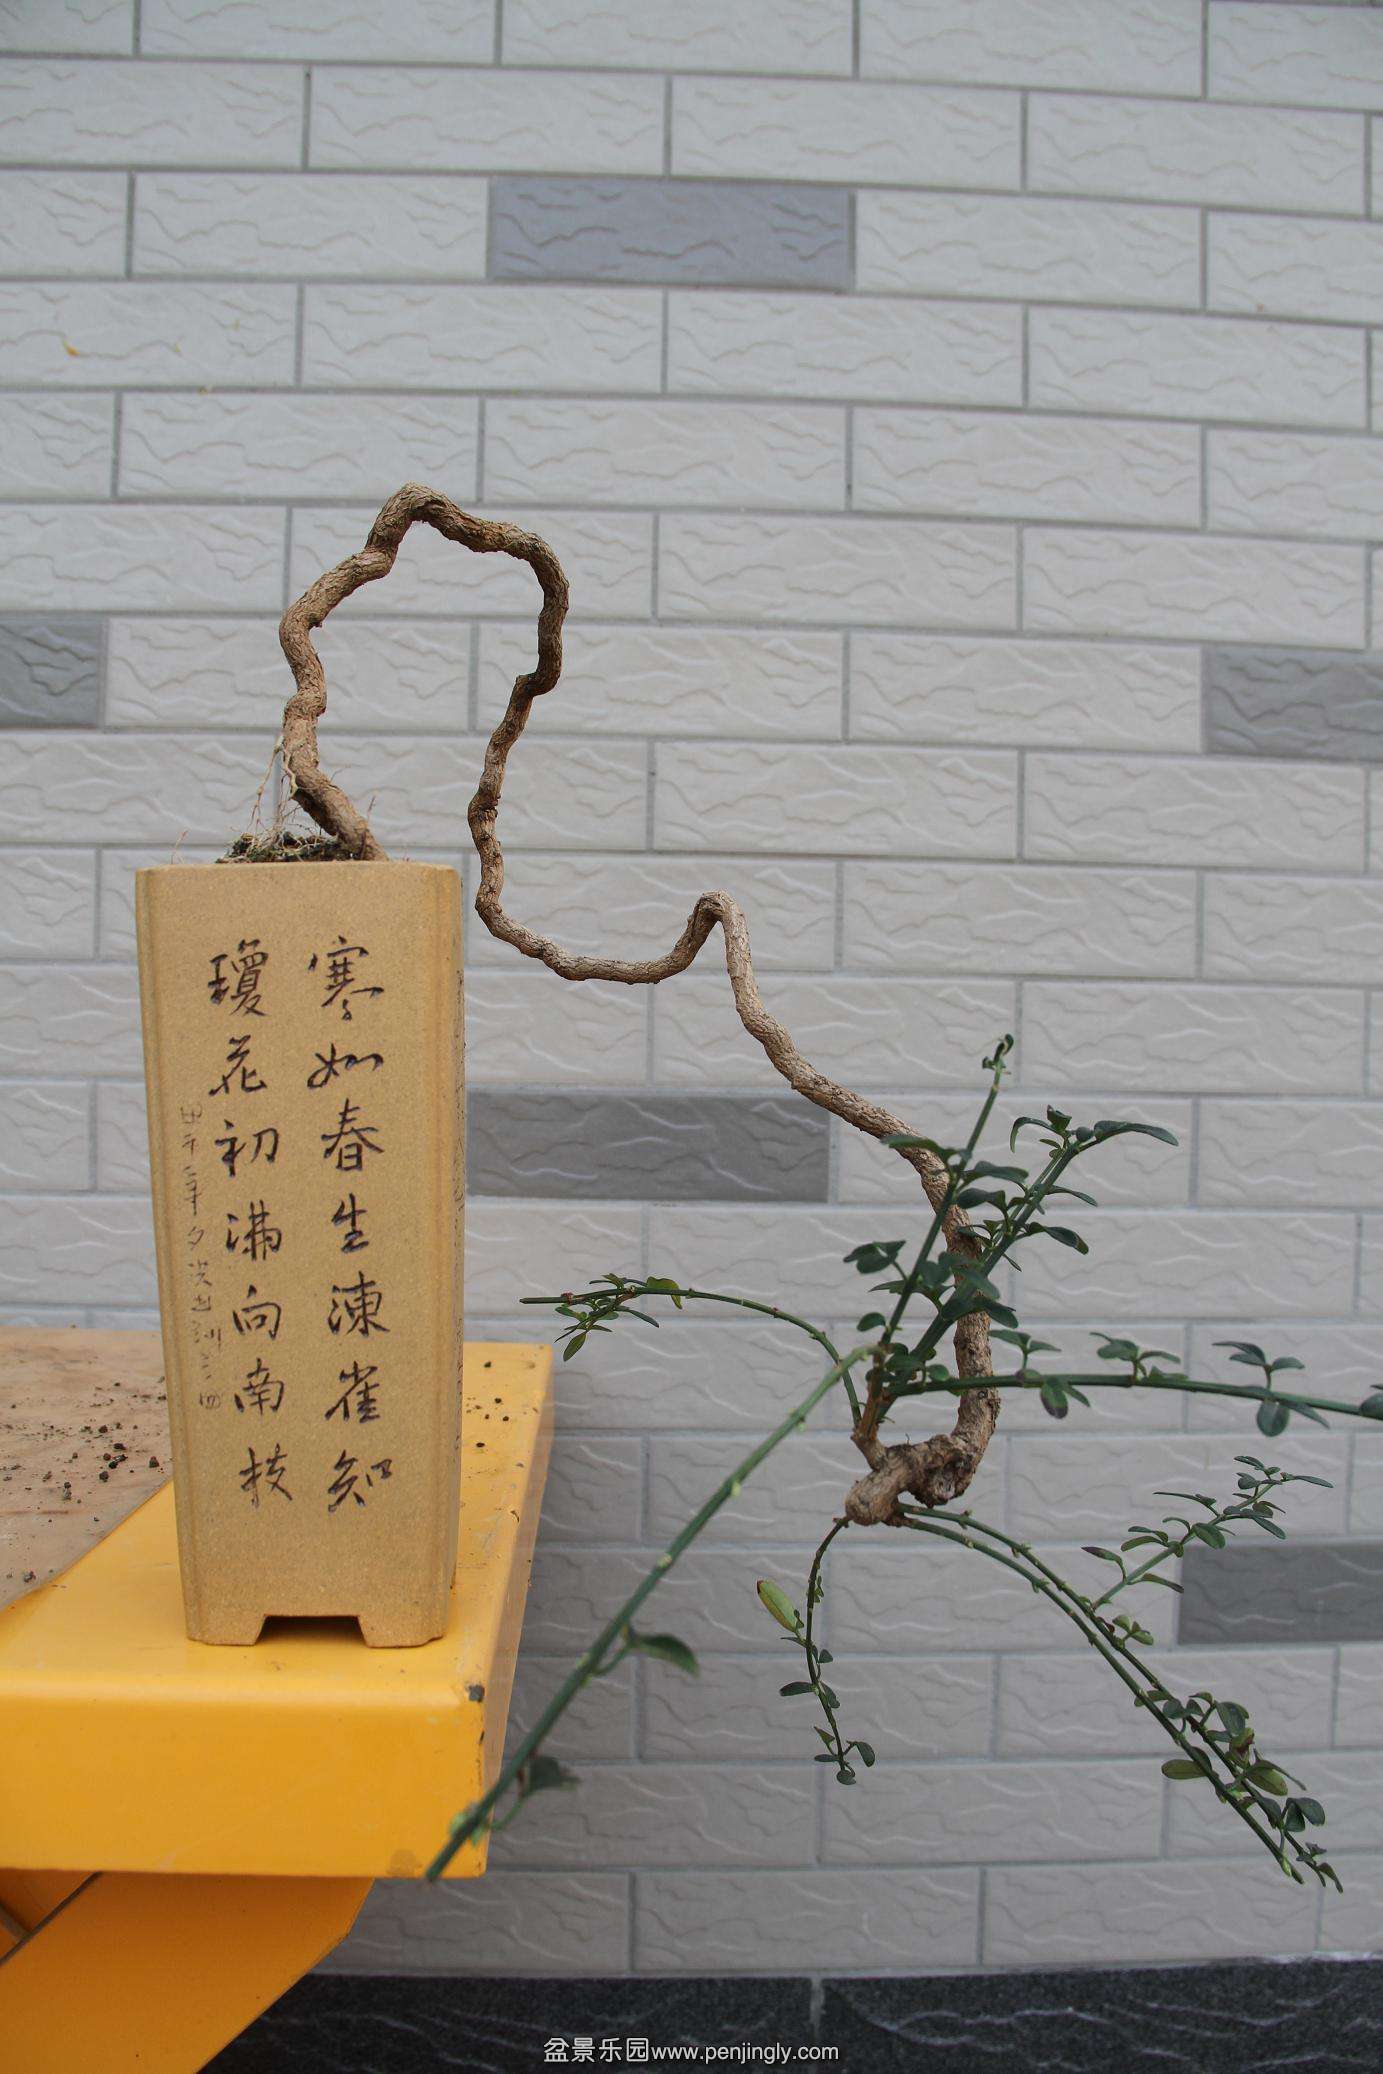 寒如春生凍雀知
瓊花初満向南枝
盆景乐园www.penjingly.com